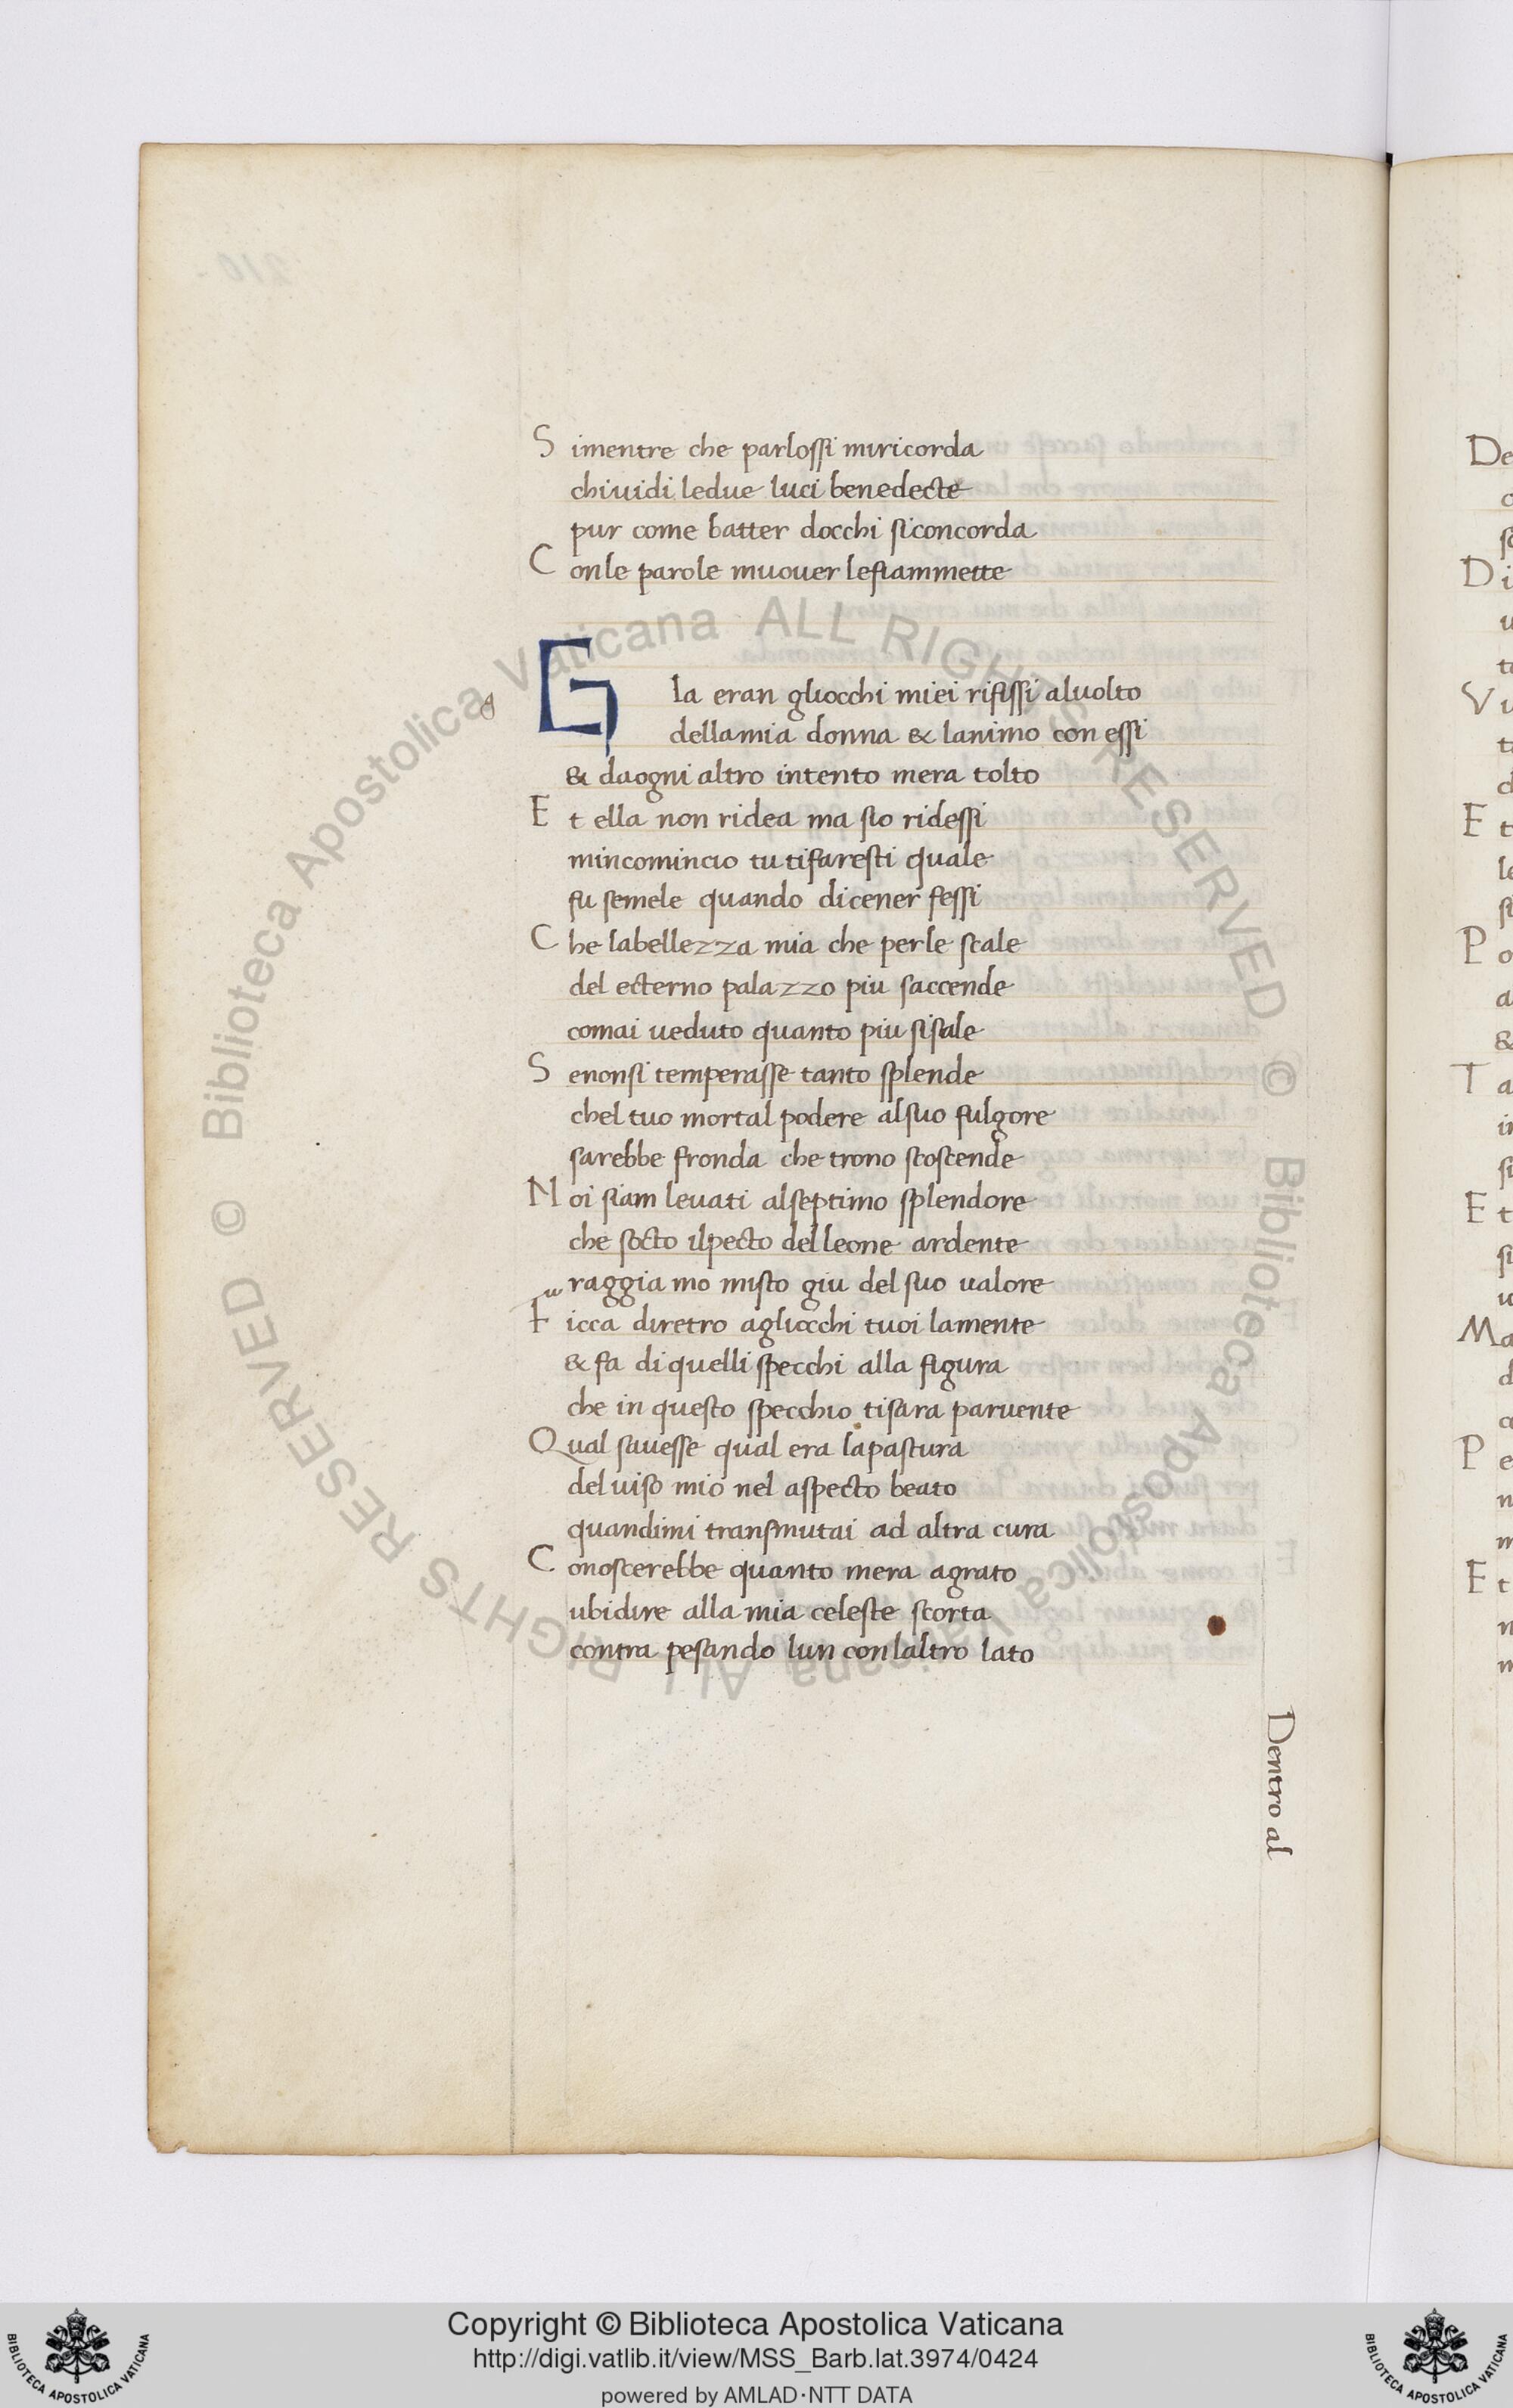 S imentre che parlossi miricorda
chiuidi ledue luci benedecte
pur come batter docchi siconcorda
C onle parole muouer lefiammette
G Ia eran gliocchi miei rifissi aluolto
g
dellamia donna & lanimo con essi
& daogni altro intento mera tolto
E t ella non ridea ma sio ridessi
mincomincio tu tifaresti quale
fu semele quando dicener fessi
C he labellezza mia che perle scale
del ecterno palazzo piu saccende
comai ueduto quanto piu sisale
S enonsi temperasse tanto splende
chel tuo mortal podere alsuo fulgore
sarebbe fronda che trono scoscende
N oi siam leuati alseptimo splendore
che socto ilpecto del leone ardente
raggia mo misto giu del suo ualore
F icca diretro agliocchi tuoi lamente
& fa di quelli specchi alla figura
che in questo specchio tisara paruente
Q ual sauesse qual era lapastura
del uiso mio nel aspecto beato
quandimi transmutai ad altra cura
C onoscerebbe quanto mera agrato
ubidire alla mia celeste scorta
contra pesando lun conlaltro lato
Dentro al
Copyright © Biblioteca Apostolica Vaticana
http://digi.vatlib.it/view/MSS_Barb.lat.3974/0424
powered by AMLAD·NTT DATA
BIBLIOTECA APOSTOLICA VATICANA
BIBLIOTECA APOSTOLICA VATICANA
© Biblioteca Apostolica Vaticana ALL RIGHTS RESERVED © Biblioteca Apostolica Vaticana ALL RIGHTS RESERVED